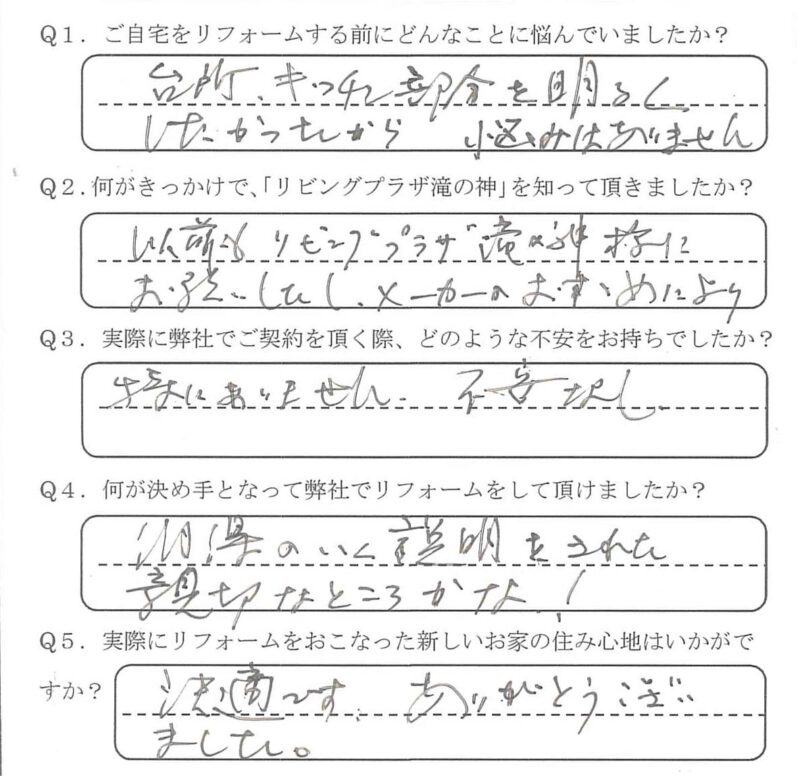 Q1. ご自宅をリフォームする前にどんなことに悩んでいましたか？
台所、キッチン部分を明るく
したかったから 悩みはありません
Q2.何がきっかけで、「リビングプラザ滝の神」を知って頂きましたか？
以前も リビングプラザ滝の神様に
お願いしたし、メーカーのおすすめにより
Q3. 実際に弊社でご契約を頂く際、どのような不安をお持ちでしたか？
特にありません。不安なし。
Q4. 何が決め手となって弊社でリフォームをして頂けましたか？
納得のいく説明をされた
親切なところかな！
Q5. 実際にリフォームをおこなった新しいお家の住み心地はいかがで
すか？ 快適です。ありがとうござい
ました。